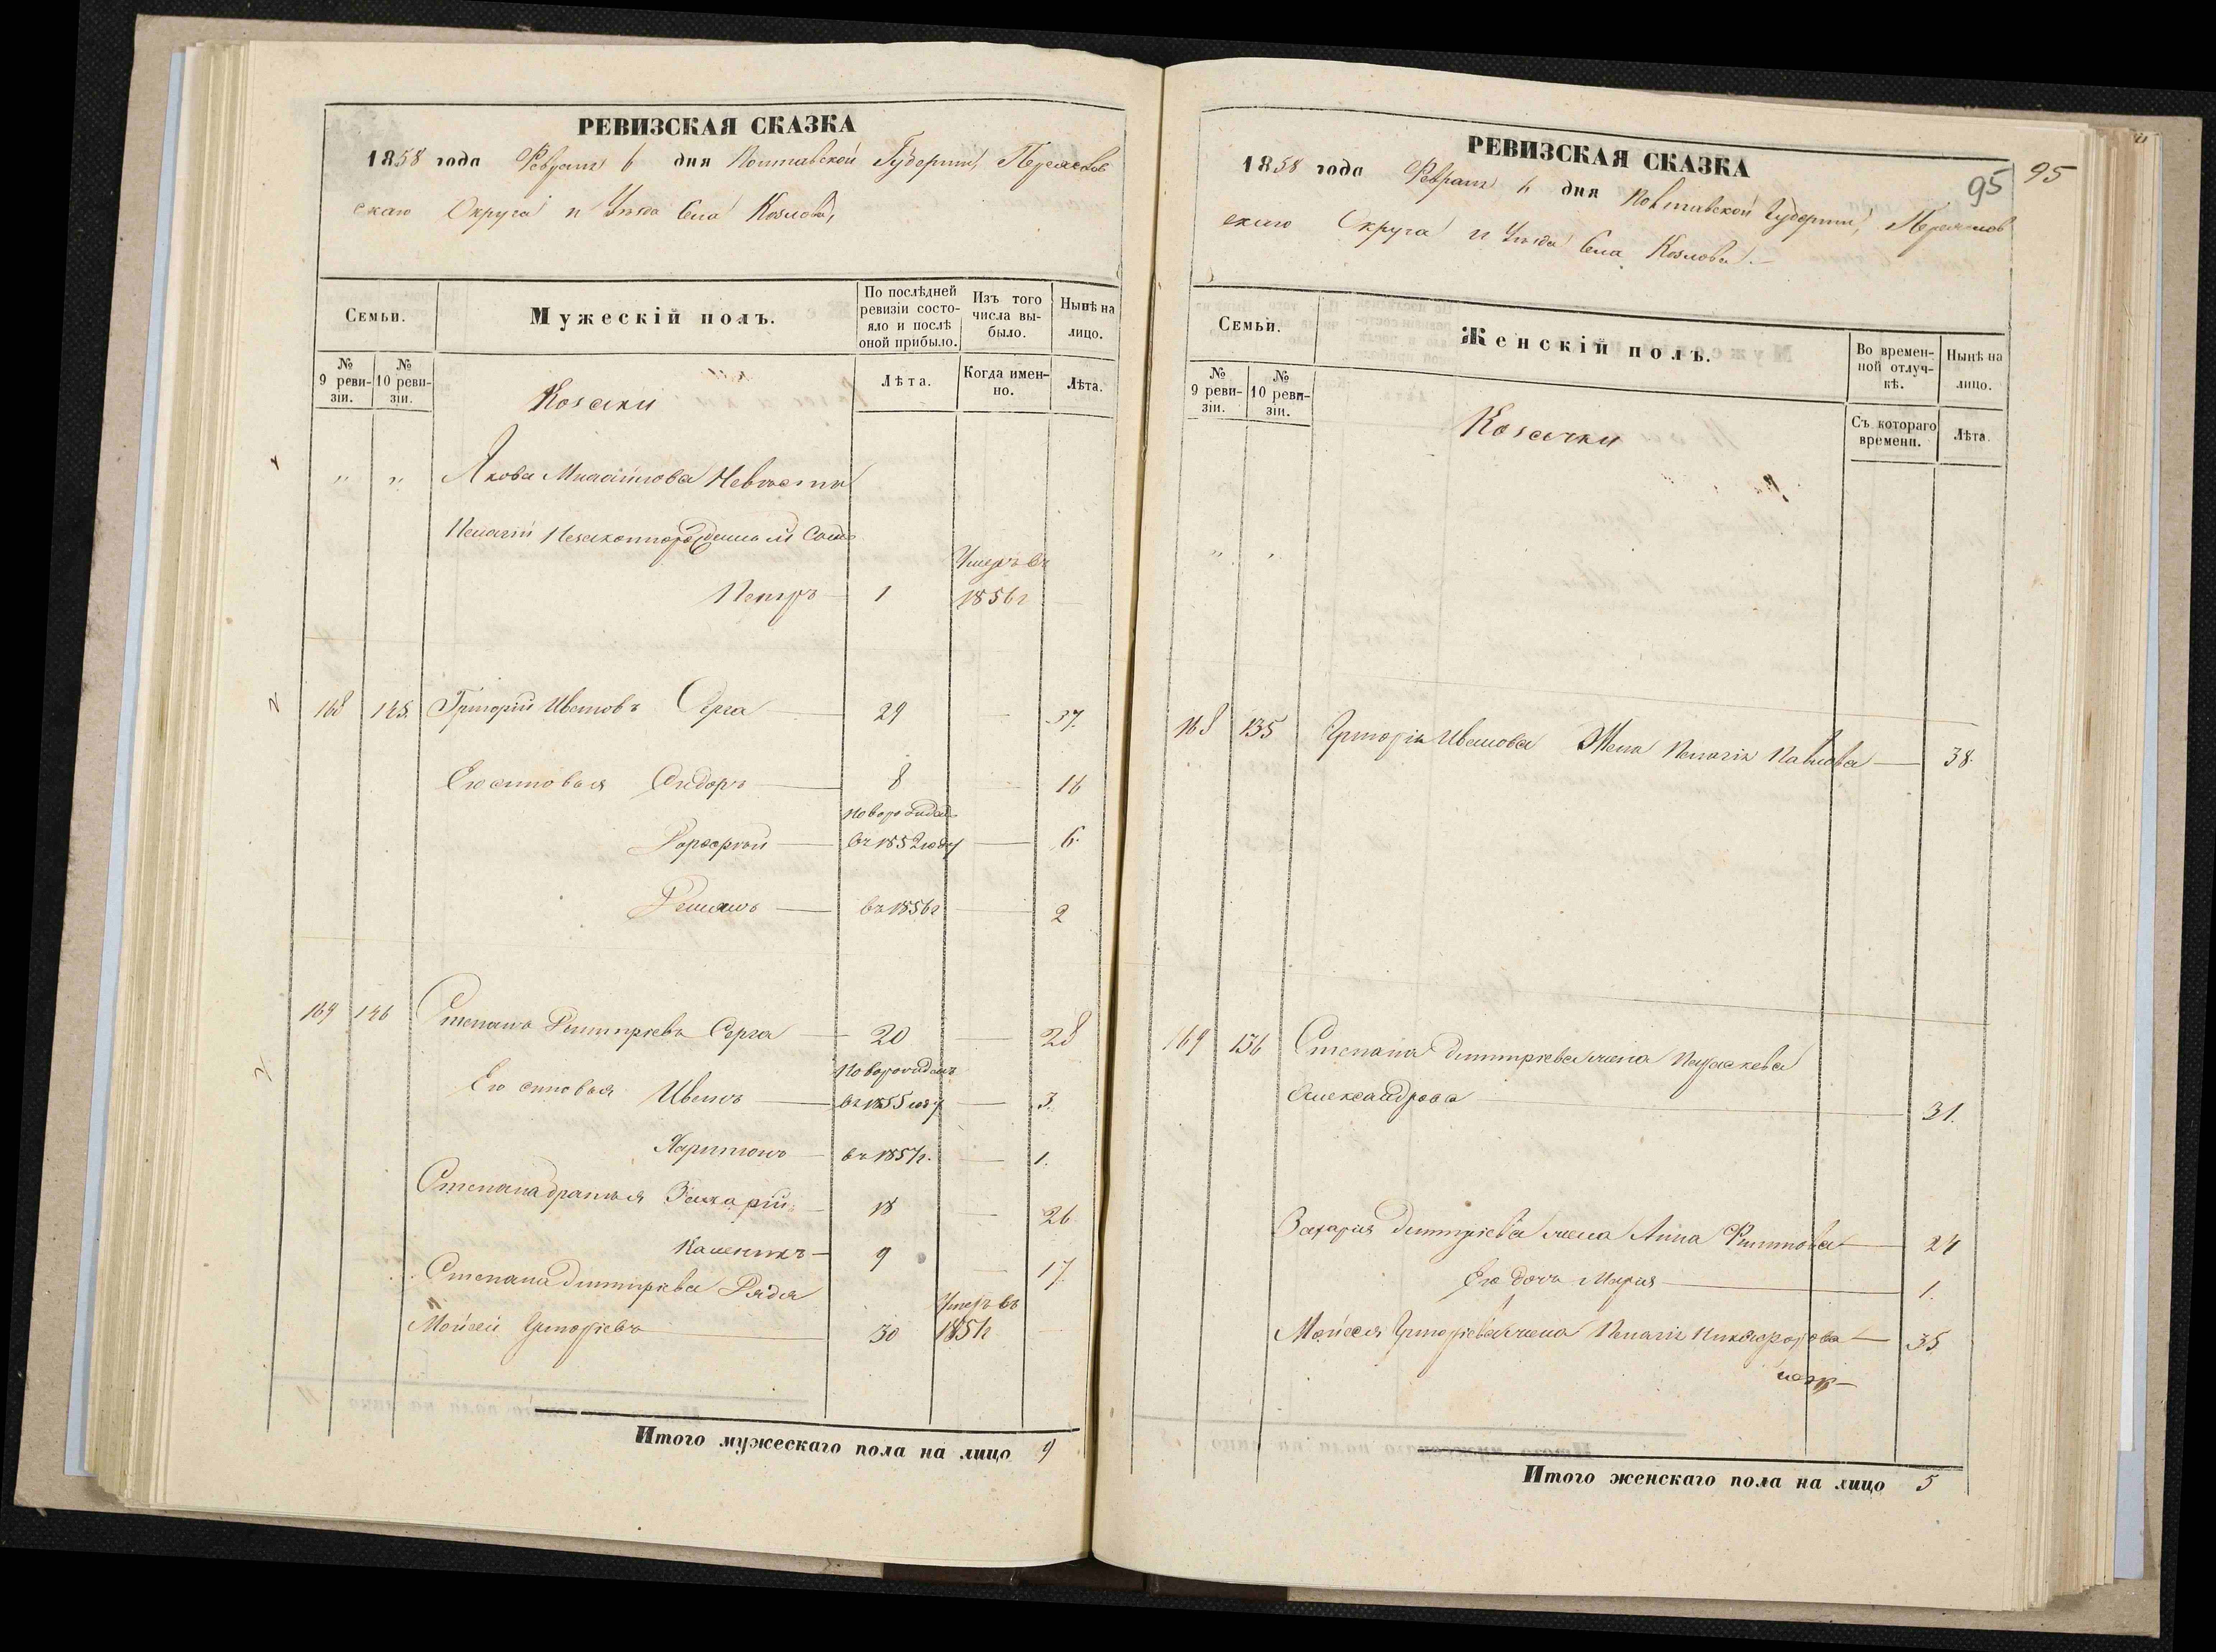 РЕВИЗСКАЯ СКАЗКА
1858 года Февраля 6 дня Полтавской Губернии, Переяслов
скаго Округа и Уѣзда Села Козлова,
Семьи.
Мужескій полъ.
По послѣдней ревизіи состояло и послѣ оной прибыло.
Изъ того числа выбыло.
Нынѣ на лицо.
№ 9 ревизіи.
№ 10 ревизіи.
Козаки
Лѣта.
Когда именно.
Лѣта.
" " Якова Михайлова Невѣстки
Пелагіи Незаконнорожденный Сынъ
Умеръ въ
Петръ 1 1856г
168 145. Григорій Ивановъ Серга 29 37.
Его сыновья Сидоръ 8 16
новорожден
Порфирій въ 1852 году 6.
въ 1856г 2
169 146 Степанъ Димитріевъ Серга 20 28
Новорожденъ
Его сыновья Иванъ въ 1855 году 3.
Харитонъ въ 1857г. 1.
Степана братья Захарій 18 26
Каленикъ 9 17.
Степана Димитріева Дядя
Умеръ въ
Мойсей Григоріевъ 30 1857г
Итого мужескаго пола на лицо 9
95
95
РЕВИЗСКАЯ СКАЗКА
1858 года Февраля 6 дня Полтавской Губерніи, Переяслов
скаго Округа и Уѣзда Села Козлова.
Семьи.
Женскій полъ.
Во временной отлучкѣ.
Нынѣ на лицо.
№ 9 ревизіи.
№ 10 ревизіи.
Козачки
Съ котораго времени.
Лѣта.
" "
168 135 Григорія Иванова Жена Пелагія Павлова 38.
169 136 Степана Димитріева жена Параскева
Александрова 31.
Захарія Димитріева жена Анна Филипова 24
Его дочь Марія 1.
Мойсея Григоріева жена Пелагія Никифорова 35
Итого женскаго пола на лицо 5